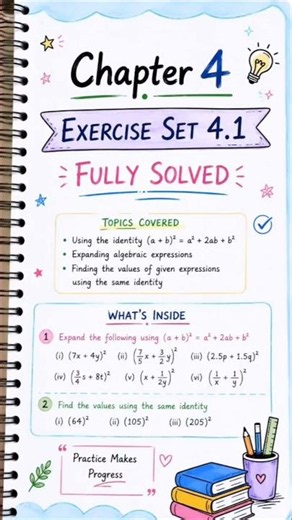 Chapter 4
EXERCISE SET 4.1
FULLY SOLVED
TOPICS COVERED
• Using the identity (a + b)² = a² + 2ab + b²
• Expanding algebraic expressions
• Finding the values of given expressions
using the same identity
WHAT'S INSIDE
1 Expand the following using (a + b)² = a² + 2ab + b²
(i) (7x + 4y)² (ii) (7/5 x + 3/2 y)² (iii) (2.5p + 1.5q)²
(iv) (3/4 s + 8t)² (v) (x + 1/2y)² (vi) (1/x + 1/y)²
2 Find the values using the same identity
(i) (64)² (ii) (105)² (iii) (205)²
Practice Makes
Progress